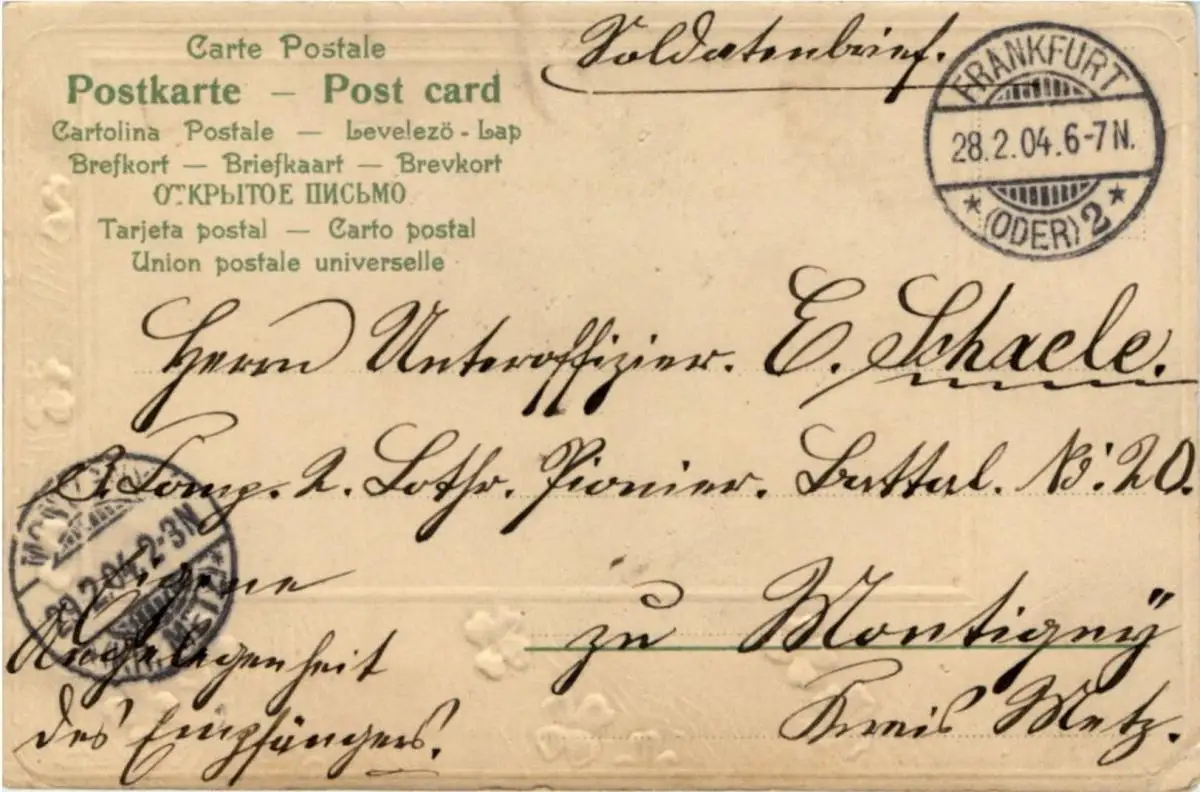 Carte Postale
Postkarte — Post card
Cartolina Postale — Levelezö-Lap
Brefkort — Briefkaart — Brevkort
ОТКРЫТОЕ ПИСЬМО
Tarjeta postal — Carto postal
Union postale universelle
Soldatenbrief.
FRANKFURT
28.2.04.6-7N.
* (ODER) 2 *
Herrn Unteroffizier. E. Schaele.
Comp. 2. Lothr. Pionier. Battal. No. 20.
zu Montigny
Kreis Metz.
29.2.04.2-3N
Eigene
Angelegenheit
des Empfängers.